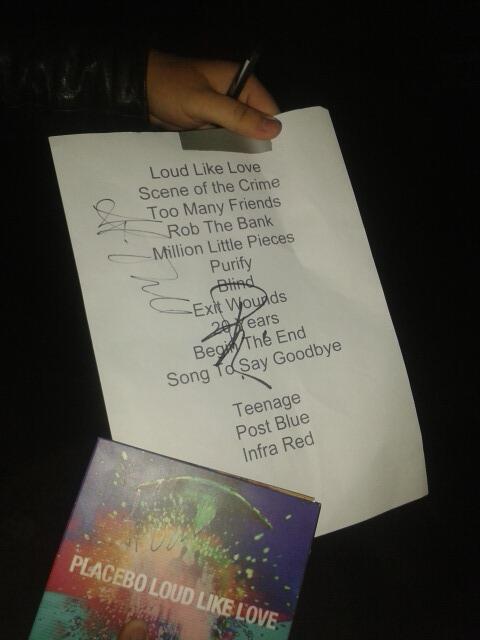 Loud Like Love
Scene of the Crime
Too Many Friends
Rob The Bank
Million Little Pieces
Purify
Blind
Exit Wounds
20 Years
Begin The End
Song To Say Goodbye
Teenage
Post Blue
Infra Red
PLACEBO LOUD LIKE LOVE